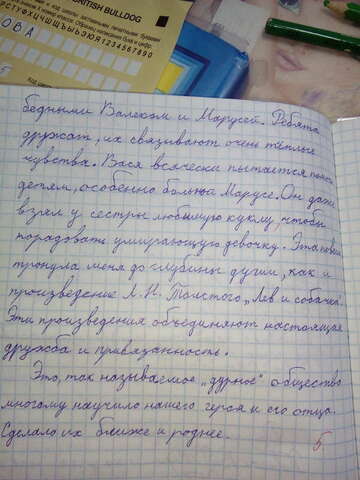 BRITISH BULLDOG
РСТУФХЦЧШЩЪЫЬЭЮЯ1234567890
ОВА
бедными Валеком и Марусей. Ребята
дружат, их связывают очень тёплые
чувства. Вася всячески пытается помочь
детям, особенно больной Марусе. Он даже
взял у сестры любимую куклу, чтобы
порадовать умирающую девочку. Эта
тронула меня до глубины души, как и
произведение Л.Н. Толстого „Лев и собачка".
Эти произведения объединяют настоящая
дружба и привязанность.
Это, так называемое „дурное" общество
многому научило нашего героя и его отца.
Сделало их ближе и роднее.
5